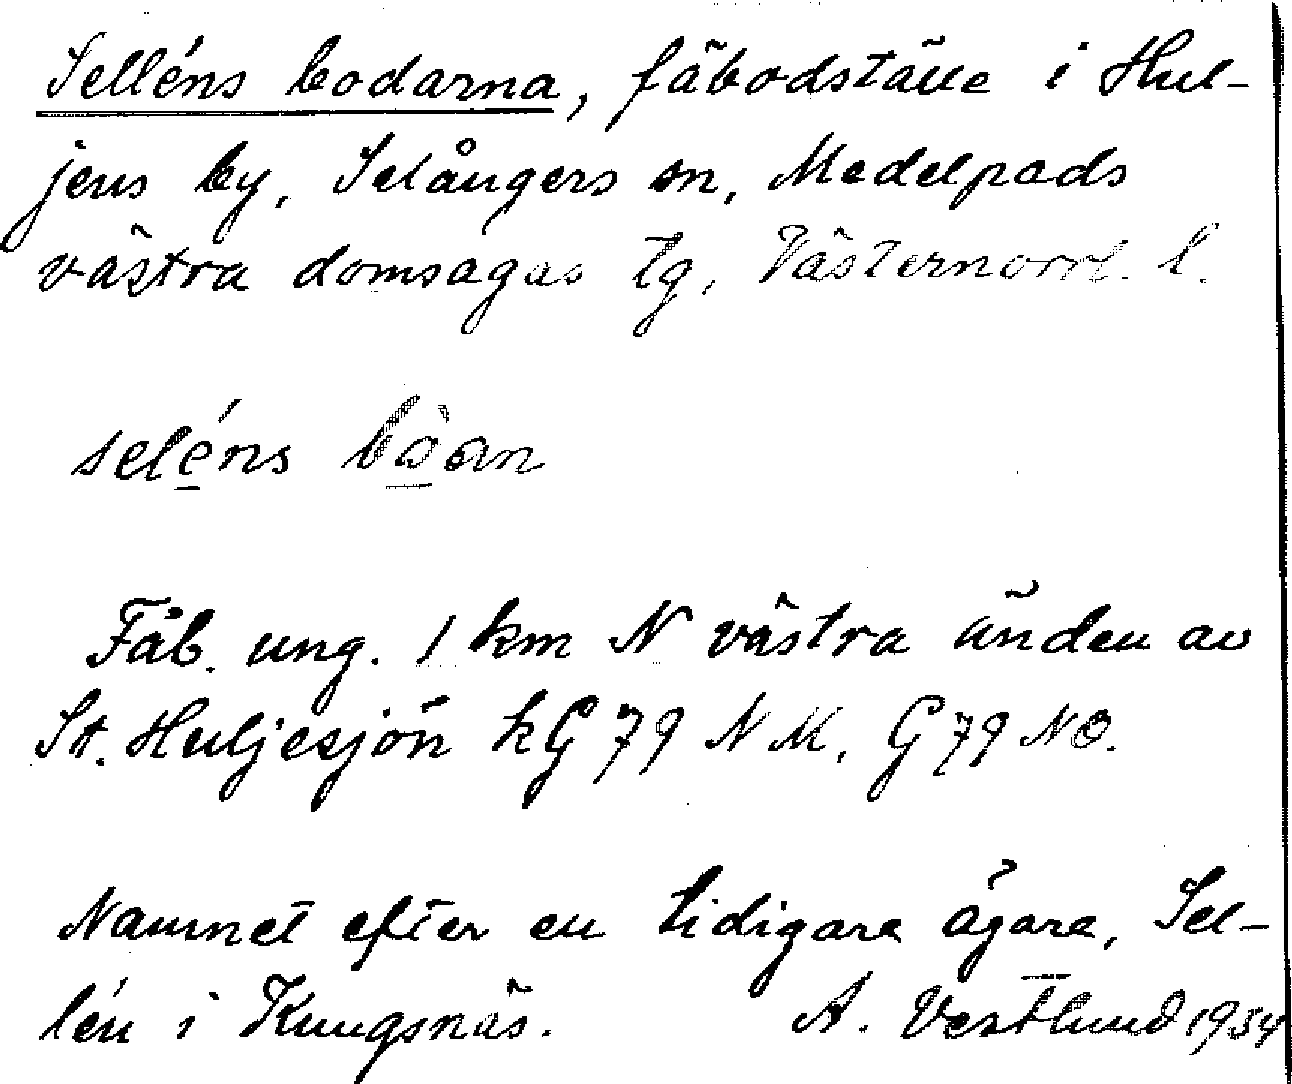 Selléns bodarna, fäbodställe i Hul-
jens by, Selångers sn, Medelpads
västra domsagas tg, Västernorrl. l.
seléns bòan
Fäb. ung. 1 km N västra änden av
St. Huljesjön kG 79 NM, G 79 NO.
Namnet efter en tidigare ägare, Sel-
lén i Kungsnäs. A. Vestlund 1934